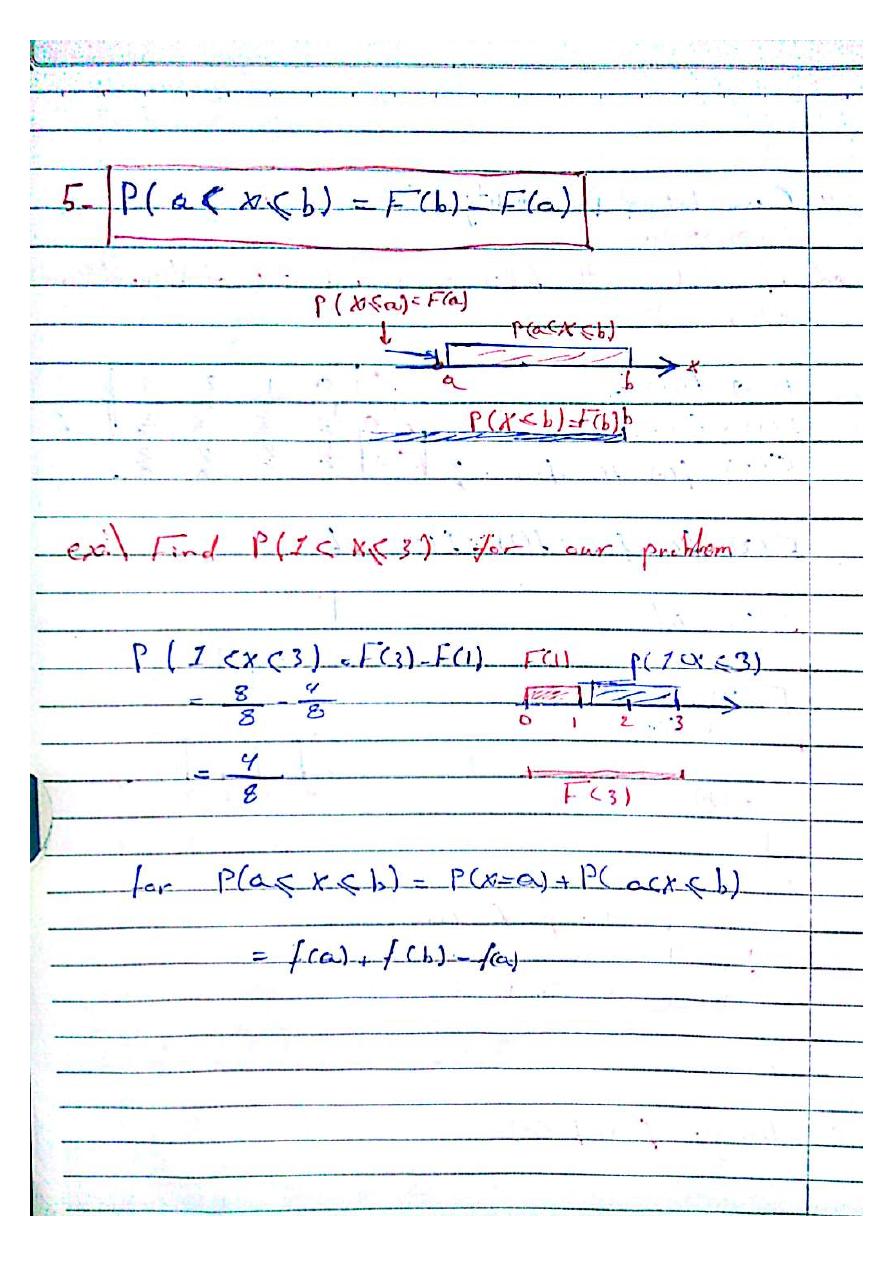 5- P( a < x ≤ b) = F(b) - F(a)
P( x ≤ a) = F(a)
P(a<x≤b)
x
a
b
P(x≤b)=F(b) b
ex:\ Find P(1 < x ≤ 3) for our problem
P( 1 < x < 3) = F(3) - F(1) F(1) P(1<x≤3)
= 8/8 - 4/8
0 1 2 3
= 4/8
F(3)
for P(a ≤ x ≤ b) = P(x=a) + P( a<x ≤ b)
= f(a) + f(b) - f(a)